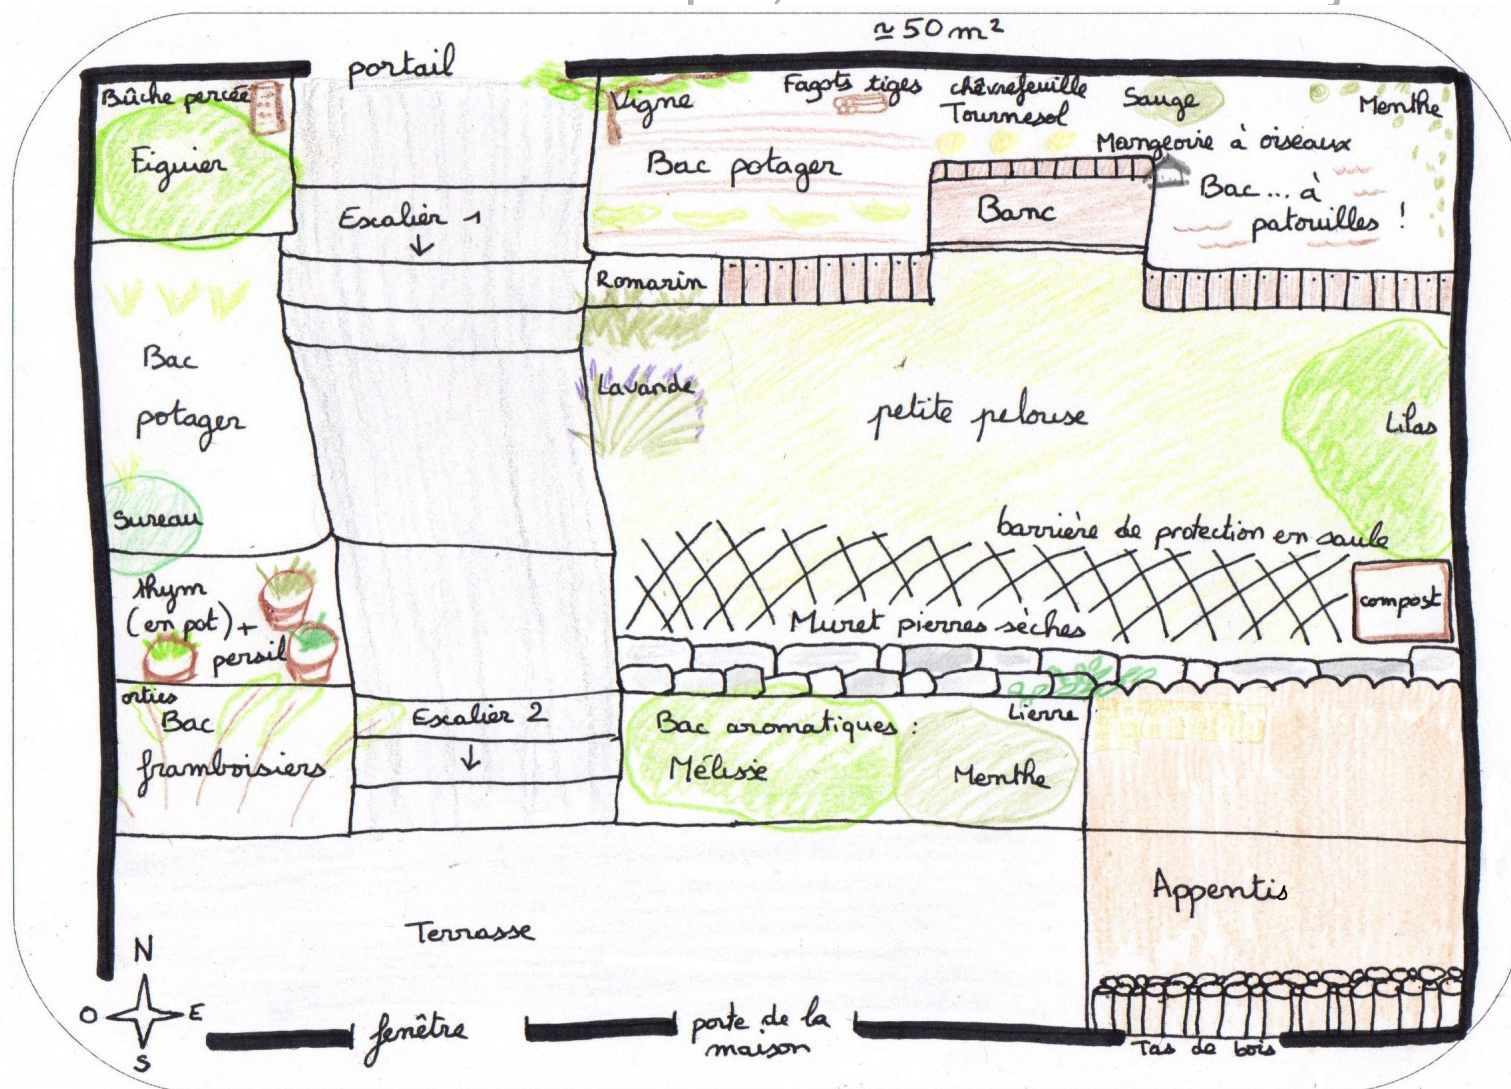 ≃ 50 m²
portail
Bûche percée
Figuier
Escalier 1
Vigne
Fagots tiges
chèvrefeuille
Tournesol
Sauge
Menthe
Mangeoire à oiseaux
Bac potager
Banc
Bac... à
patouilles !
Romarin
Bac
potager
Lavande
petite pelouse
Lilas
Sureau
barrière de protection en saule
thym
(en pot) +
persil
compost
Muret pierres sèches
orties
Bac
framboisiers
Escalier 2
Bac aromatiques :
Mélisse
Menthe
Lierre
Terrasse
Appentis
N
O
E
S
fenêtre
porte de la
maison
Tas de bois